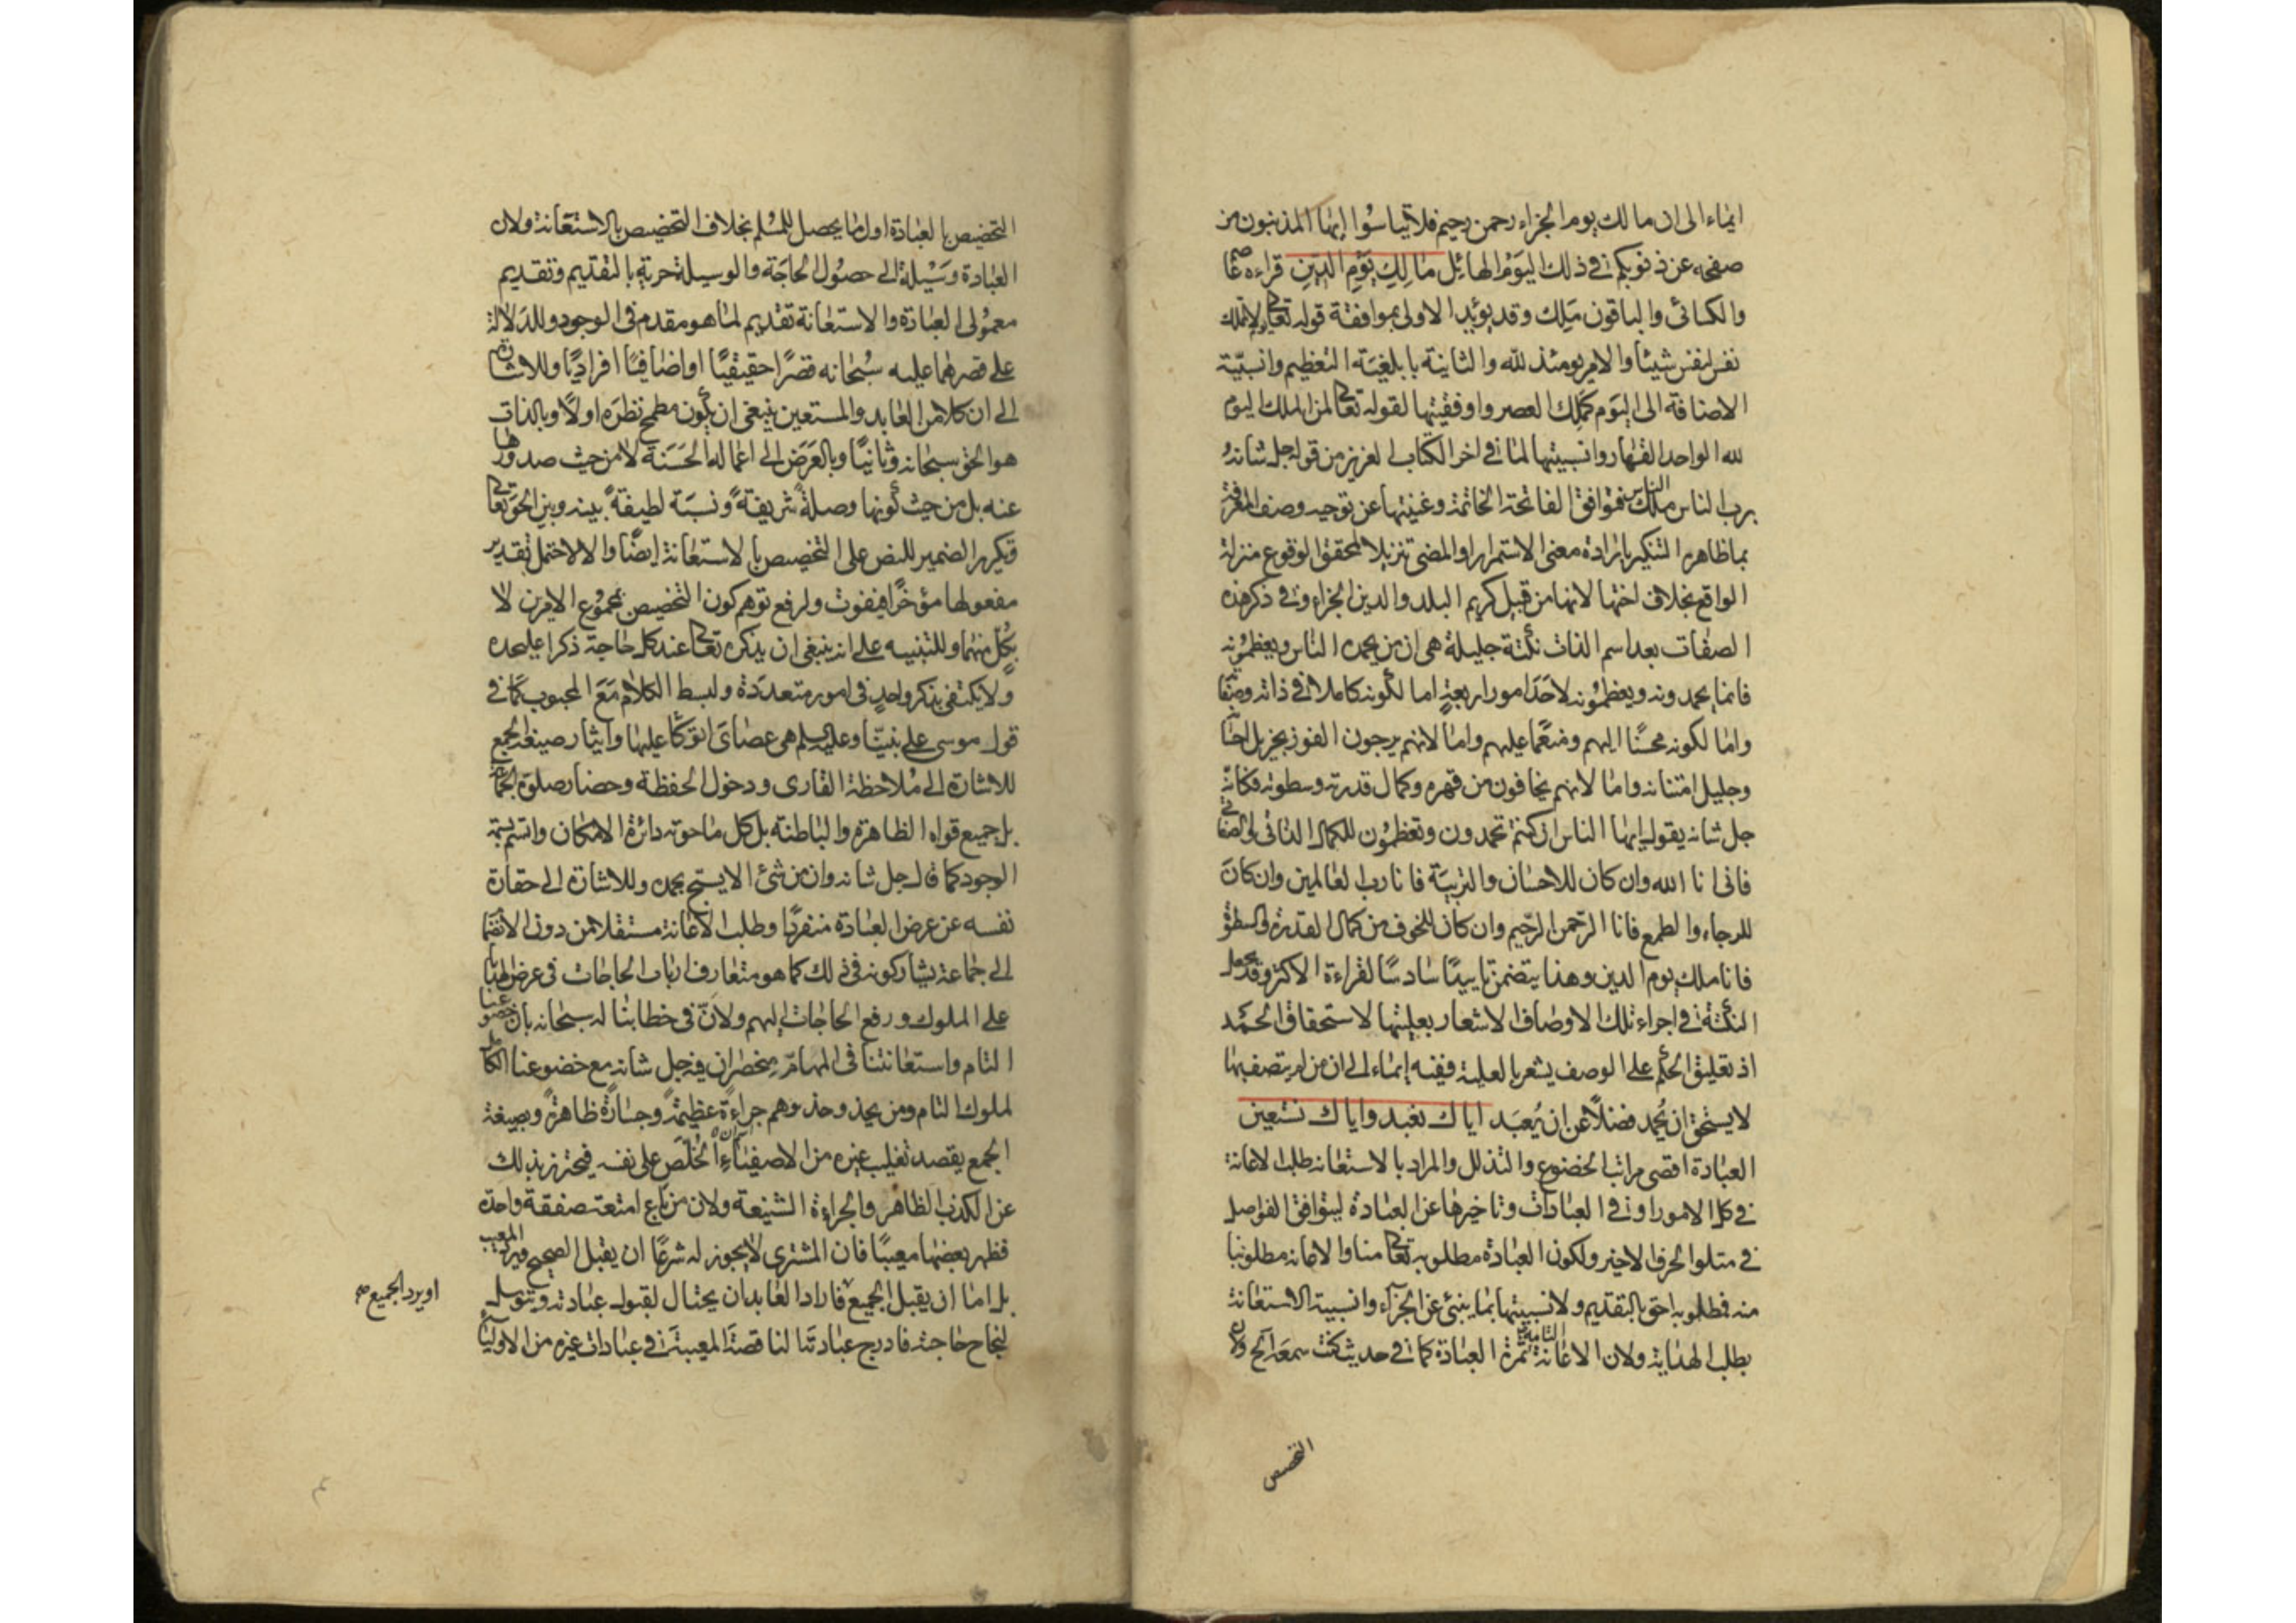 ايماء الى ان مالك يوم الجزاء رحمن رحيم فلا تياسوا ايها المذنبون من
صفحه عن ذنوبكم في ذلك اليوم الهائل مَالِكِ يَوْمِ الدِّينِ قراءه عاصم
والكسائى والباقون مَلِك وقد يؤيد الاولى بموافقة قوله تعالى لاتملك
نفس لنفس شيئا والامر يومئذ لله والثانية بابلغية التعظيم وانسبيّة
الاضافة الى اليوم كملك العصر واوفقيتها لقوله تعالى لمن الملك اليوم
لله الواحد القهار وانسبيتها لما في اخر الكتاب العزيز من قوله جل شانه
برب الناس ملك الناس فتوافق الفاتحة الخاتمة وغنيتها عن توجيه وصف المعرفة
بما ظاهره التنكير بارادة معنى الاستمرار او المضى تنزيلا لمحقق الوقوع منزلة
الواقع بخلاف اختها لانها من قبيل كريم البلد والدين الجزاء وفى ذكر هذه
الصفات بعد اسم الذات نكتة جليلة هى ان من يحمده الناس ويعظمونه
فانما يحمدونه ويعظمونه لاحد امور اربعة اما لكونه كاملا في ذاته وصفاته
واما لكونه محسنًا اليهم ومنعما عليهم واما لانهم يرجون الفوز بجزيل احسانه
وجليل امتنانه واما لانهم يخافون من قهره وكمال قدرته وسطوته فكانه
جل شانه يقول ايها الناس ان كنتم تحمدون وتعظمون للكمال الذاتى والصفاتى
فانى انا الله وان كان للاحسان والتربية فانا رب العالمين وان كان
للرجاء والطمع فانا الرحمن الرحيم وان كان للخوف من كمال القدرة والسطوة
فانا ملك يوم الدين وهذا يتضمن تاييدًا سادسًا لقراءة الاكثر وقد يجعل
النكتة في اجراء تلك الاوصاف الاشعار بعليتها لاستحقاق الحمد
اذ تعليق الحكم على الوصف يشعر بالعلية ففيه إيماء الى ان من لم يتصف بها
لا يستحق ان يُحمد فضلاً عن ان يُعبَد اياك نعبد واياك نستعين
العبادة اقصى مراتب الخضوع والتذلل والمراد بالاستعانه طلب الاعانة
فى كل الامور او في العبادات وتاخيرها عن العبادة ليتوافق الفواصل
فى متلو الحرف الاخير ولكون العبادة مطلوبه تعالى منا والاعانه مطلوبنا
منه فمطلوبه احق بالتقديم ولانسبيتها بما ينبئ عن الجزاء وانسبية الاستعانة
بطلب الهداية ولان الاعانة التامة ثمرة العبادة كما في حديث كنت سمعه الخ ولان
التخصيص
التخصيص بالعبادة اول ما يحصل للمسلم بخلاف التخصيص بالاستعانة ولان
العبادة وسيلة الى حصول الحاجة والوسيلة حرية بالتقديم وتقديم
معمولى العبادة والاستعانة تقديم لما هو مقدم فى الوجود وللدلالة
على قصرهما عليه سُبحانه قصرًا حقيقيًا او اضافيًا افراديًا وللاشارة
الى ان كلا من العابد والمستعين ينبغى ان يكون مطمح نظره اولا وبالذات
هو الحق سبحانه وثانيًا وبالعرض الى اعماله الحسنة لا من حيث صدورها
عنه بل من حيث كونها وصلةً شريفةً ونسبة لطيفةً بينه وبين الحق تعالى
وتكرير الضمير للنص على التخصيص بالاستعانة ايضًا والا لاحتمل تقدير
مفعولها مؤخرًا فيفوت ولرفع توهم كون التخصيص بمجموع الامرين لا
بكلٍ منهما وللتنبيه على انه ينبغى ان يذكره تعالى عند كل حاجة ذكرا عليحده
ولا يكتفى بذكر واحدٍ فى امور متعددة ولبسط الكلام مع المحبوب كما فى
قول موسى على نبينا وعليه السلم هى عصاى اتوكأ عليها وايثار صيغة الجمع
للاشارة الى ملاحظة القارى ودخول الحفظة وحضار صلوة الجماعة
بل جميع قواه الظاهرة والباطنة بل كل ما حوته دائرة الامكان واتسم بسمة
الوجود كما قال جل شانه وان من شئ الا يسبح بحمده وللاشارة الى حقارة
نفسه عن عرض العبادة منفردًا وطلب الاعانة مستقلا من دون الانضمام
الى جماعة يشاركونه فى ذلك كما هو متعارف ارباب الحاجات فى عرض الهدايا
على الملوك ورفع الحاجات اليهم ولانّ فى خطابنا له سبحانه بان خضوعنا
التام واستعانتنا فى المهامّ منحصران فيه جل شانه مع خضوعنا الكامل
لملوك التام ومن يحذو حذوهم جراءةً عظيمةً وجسارةً ظاهرةً وبصيغة
الجمع يقصد تغليب غيره من الاصفياءِ الخُلَّصِ على نفسه فيحترز بذلك
عن الكذب الظاهر والجراءة الشنيعة ولان من باع امتعة صفقة واحدة
فظهر بعضها معيبًا فان المشترى لا يجوز له شرعًا ان يقبل الصحيح ويرد المعيب
بل اما ان يقبل الجميع فاراد العابد ان يحتال لقبول عبادته ويتوسل
او يرد الجميع صح
لنجاح حاجته فادرج عبادته الناقصة المعيبة فى عبادات غيره من الاولياء